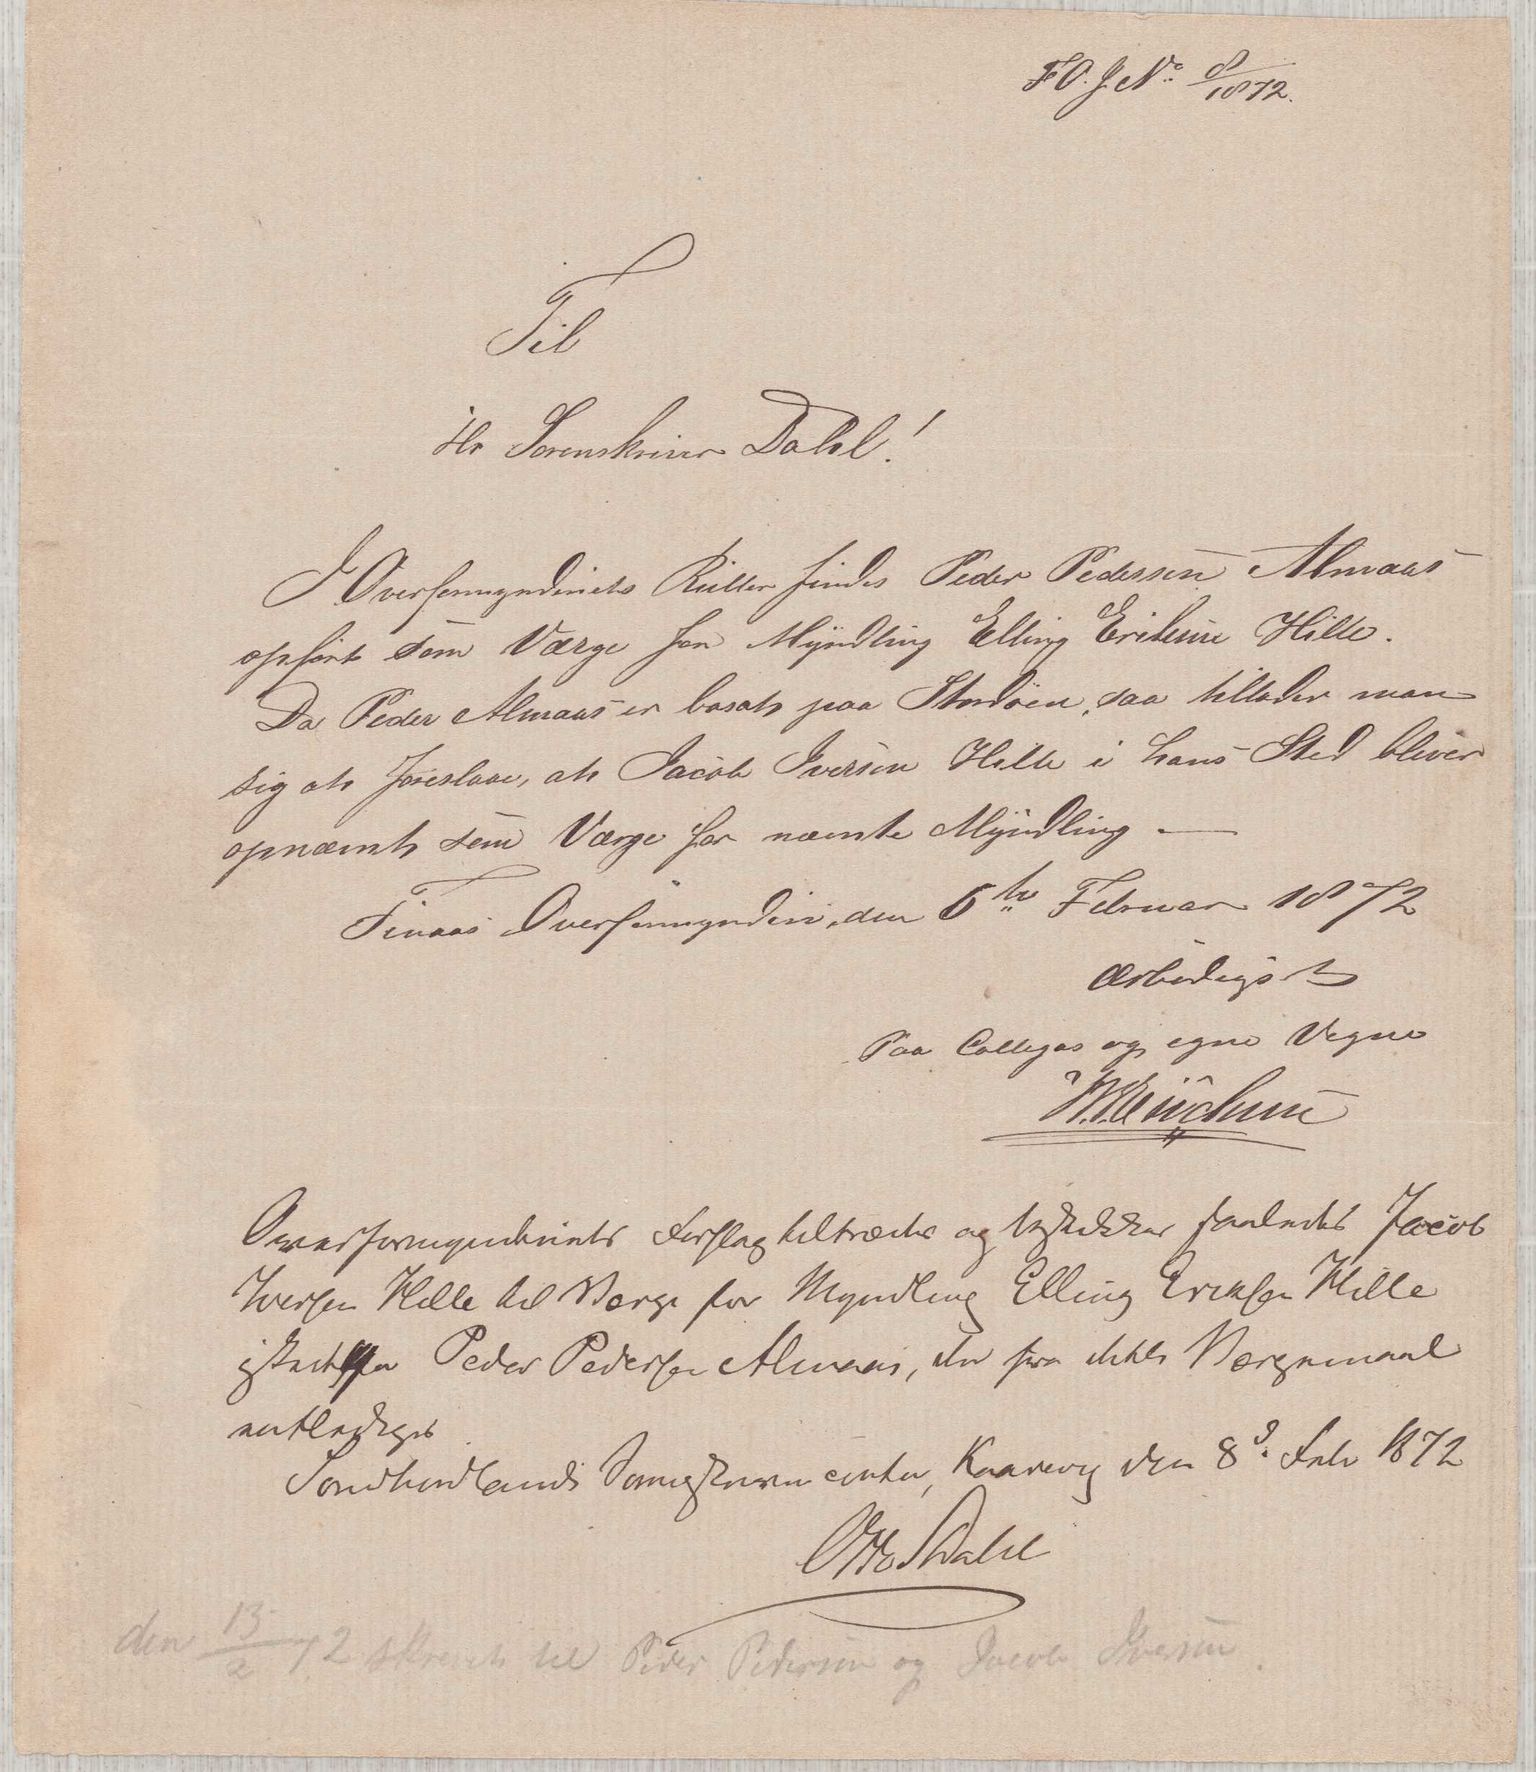 F O. J. No. 8/1872.
Til
Hr Sorenskriver Dahl!
I Overformynderiets Ruller findes Peder Pedersen Almaas
opført som Værge for Myndling Elling Eriksen Hille.
Da Peder Almaas er bosat paa Stordøen, saa tillader man
sig at foreslaae, at Jacob Iversen Hille i hans Sted bliver
opnævnt som Værge for nævnte Myndling —
Finaas Overformynderi, den 6te Februar 1872
Ærbødigst
Paa Collegas og egne Vegne
Overformynderiets Forslag tiltrædes og beskikkes saaledes Jacob
Iversen Hille til Værge for Myndling Elling Eriksen Hille
istedetfor Peder Pedersen Almaas, der fra dette Værgemaal
entlediges
Søndhordlands Sorenskrivercontor, Kaarevig den 8d. Febr 1872
Otto Dahl
den 13/2 72 skrevet til Peder Pedersen og Jacob Iversen.